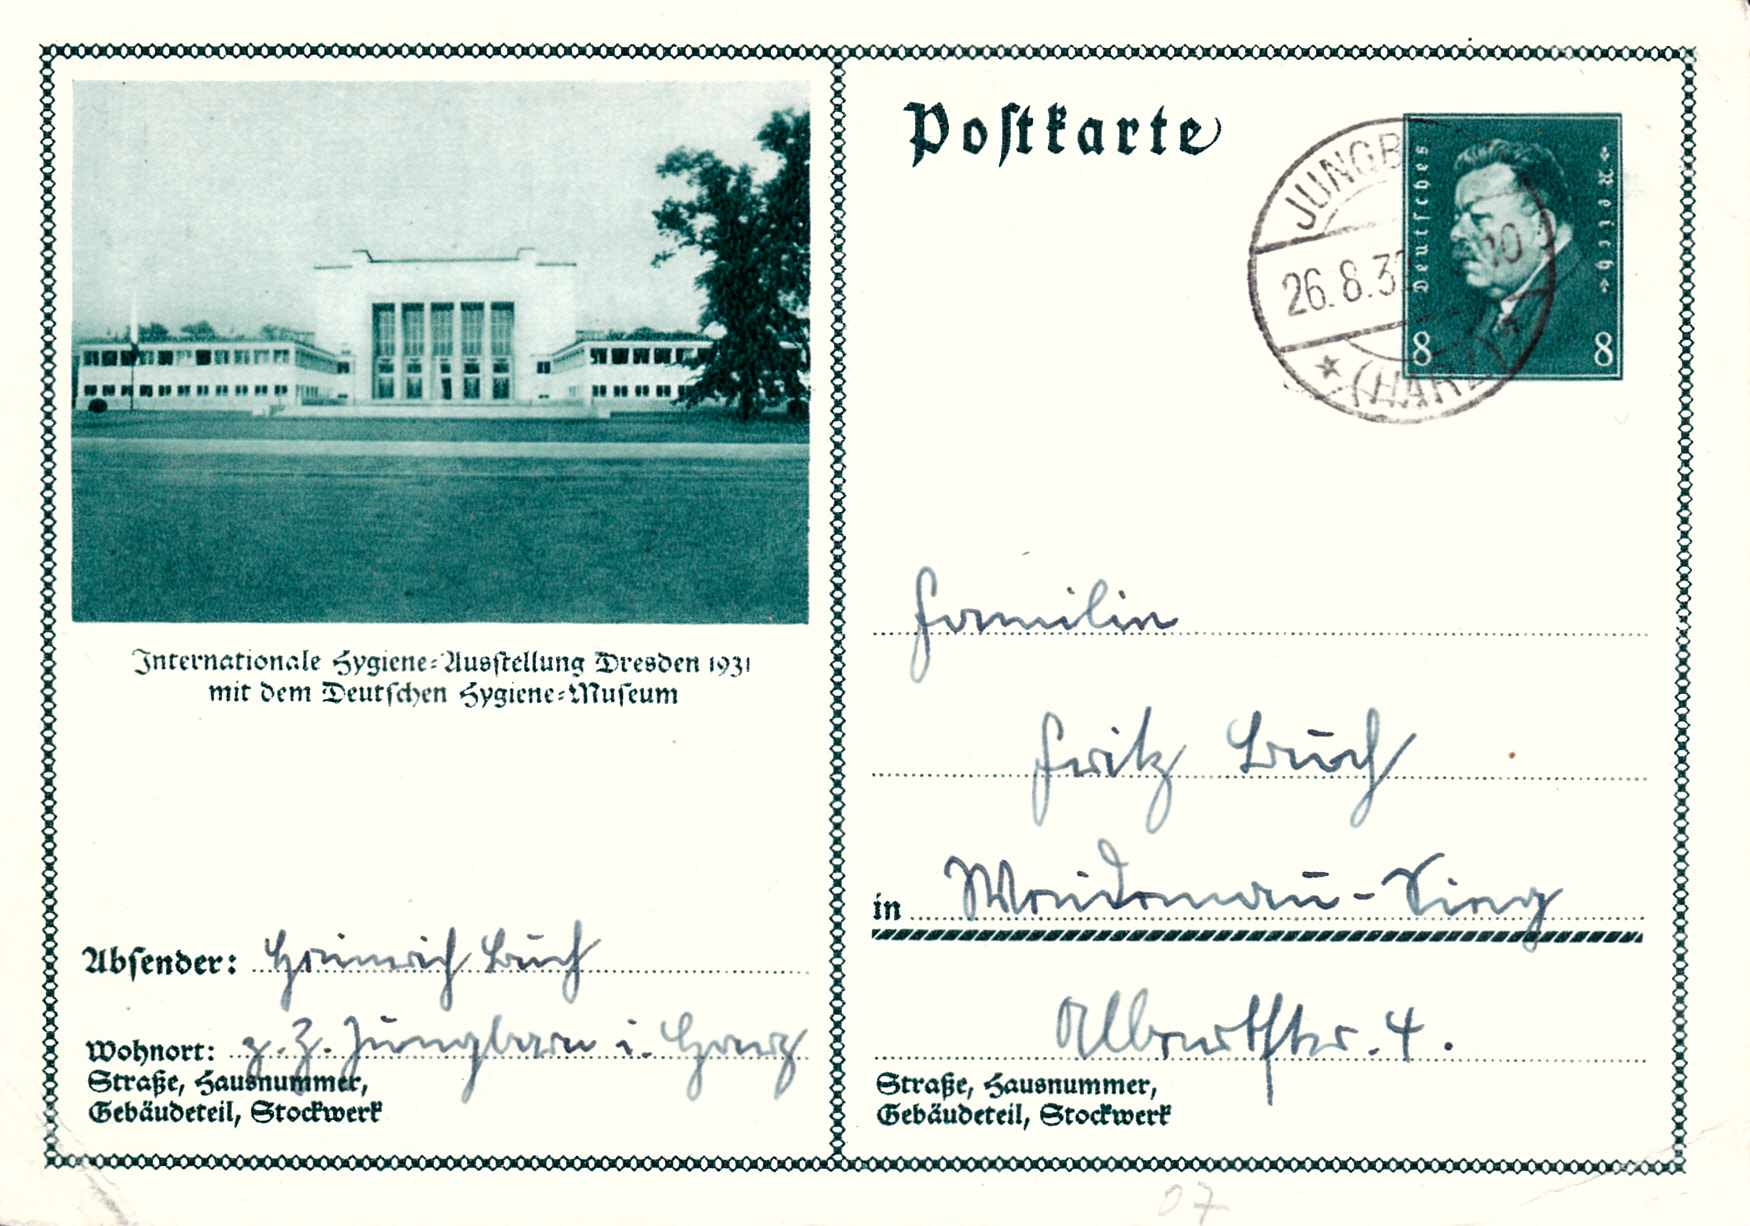 Internationale Hygiene-Ausstellung Dresden 1931
mit dem Deutschen Hygiene-Museum
Absender: Heinrich Buch
Wohnort: z. Z. Jungborn i. Harz
Straße, Hausnummer,
Gebäudeteil, Stockwerk
Postkarte
JUNGB
26.8.32
(HARZ)
Deutsches
Reich
8 8
Familie
Fritz Buch
in Weidenau-Sieg
Albertstr. 4.
Straße, Hausnummer,
Gebäudeteil, Stockwerk
07